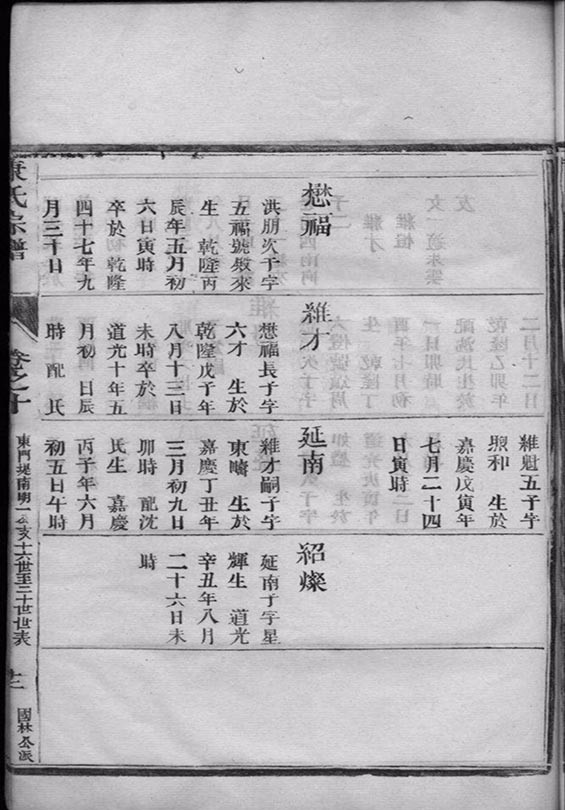 懋福
洪朋次子字
五福號殿來
生 乾隆丙
辰年五月初
六日寅時
卒於 乾隆
四十七年九
月三十日
維才
懋福長子字
六才 生於
乾隆戊子年
八月十三日
未時卒於
道光十年五
月初日辰
時 配氏
維魁五子字
煦和 生於
嘉慶戊寅年
七月二十四
日寅時
延南
維才嗣子字
東疇 生於
嘉慶丁丑年
三月初九日
卯時 配沈
氏生 嘉慶
丙子年六月
初五日午時
紹燦
延南子字星
輝生 道光
辛丑年八月
二十六日未
時
康氏宗譜
卷之十
東門堤南明一公亥十六世至二十世世表
十二
國林公派